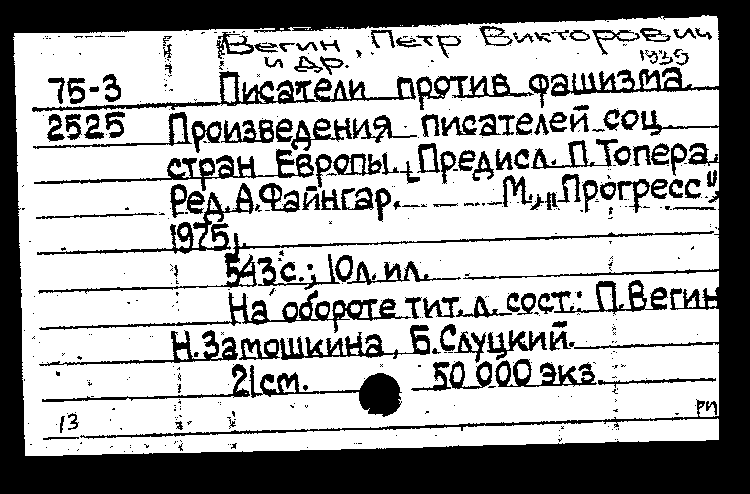 Вегин, Петр Викторович
и др. 1935
75-3 Писатели против фашизма.
2525 Произведения писателей соц.
стран Европы. [Предисл. П.Топера.
Ред. А.Файнгар. М., „Прогресс",
1975].
543 с.; 10 л. ил.
На обороте тит. л. сост.: П.Вегин
Н.Замошкина, Б.Слуцкий.
21 см. 50 000 экз.
13 РП